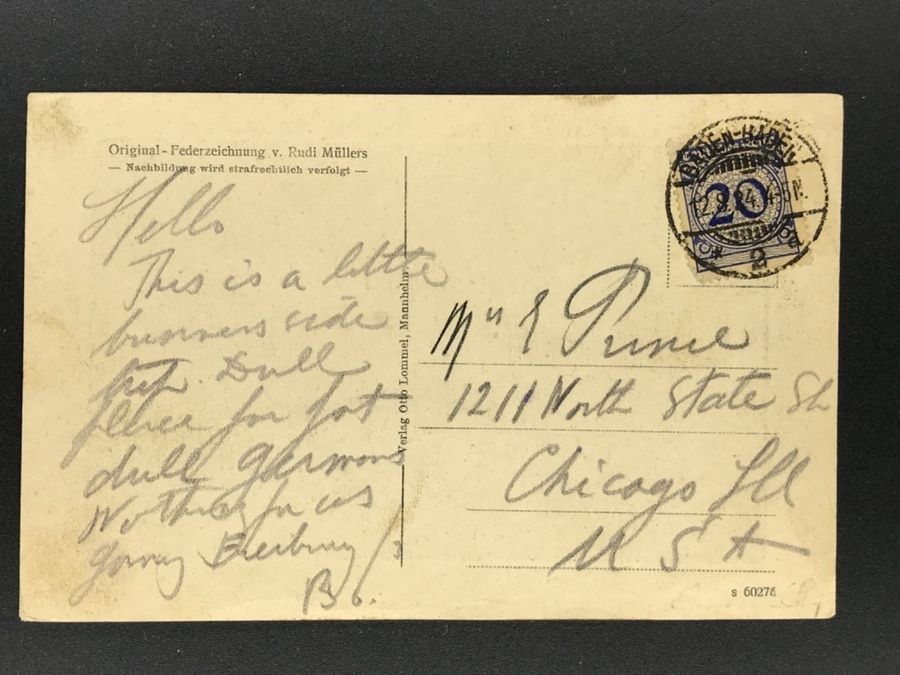 Original - Federzeichnung v. Rudi Müllers
— Nachbildung wird strafrechtlich verfolgt —
Hello
This is a little
business side
trip. Dull
place for fat
dull Germans
Nothing for us
going Freiburg
B.
Verlag Otto Lommel, Mannheim
BADEN-BADEN
20
2
E.
1211 North State St
Chicago Ill
U S A
s 60276